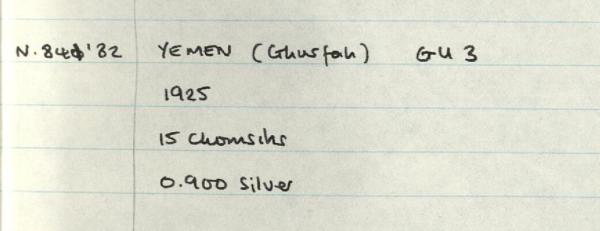 YEMEN (Ghurfah) GU 3
1925
15 Chomsihs
0.900 Silver